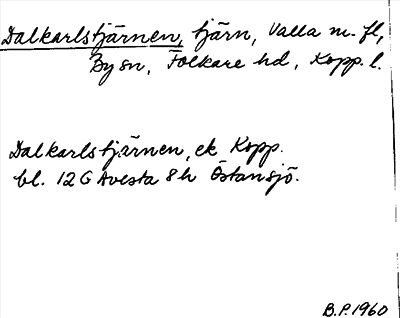 Dalkarlstjärnen, tjärn, Valla m. fl,
By sn, Folkare hd, Kopp. l.
Dalkarlstjärnen, ek Kopp.
bl. 12 G Avesta 8h Östansjö.
B.P. 1960